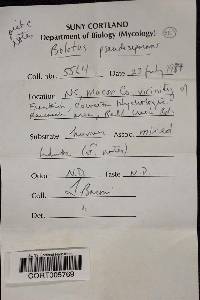 pict &
notes
SUNY CORTLAND
Department of Biology (Mycology)
Boletus pseudosepe
Coll. nbr. 5564 Date 27 July 1987
Location NC, Macon Co. vicinity of
Franklin, Coweeta Hydrologic
Research area, Ball Creek Rd.
Substrate humus Assoc. mixed
woods (notes)
Odor N.D. Taste N.D.
Coll.
Det. "
CORT005769